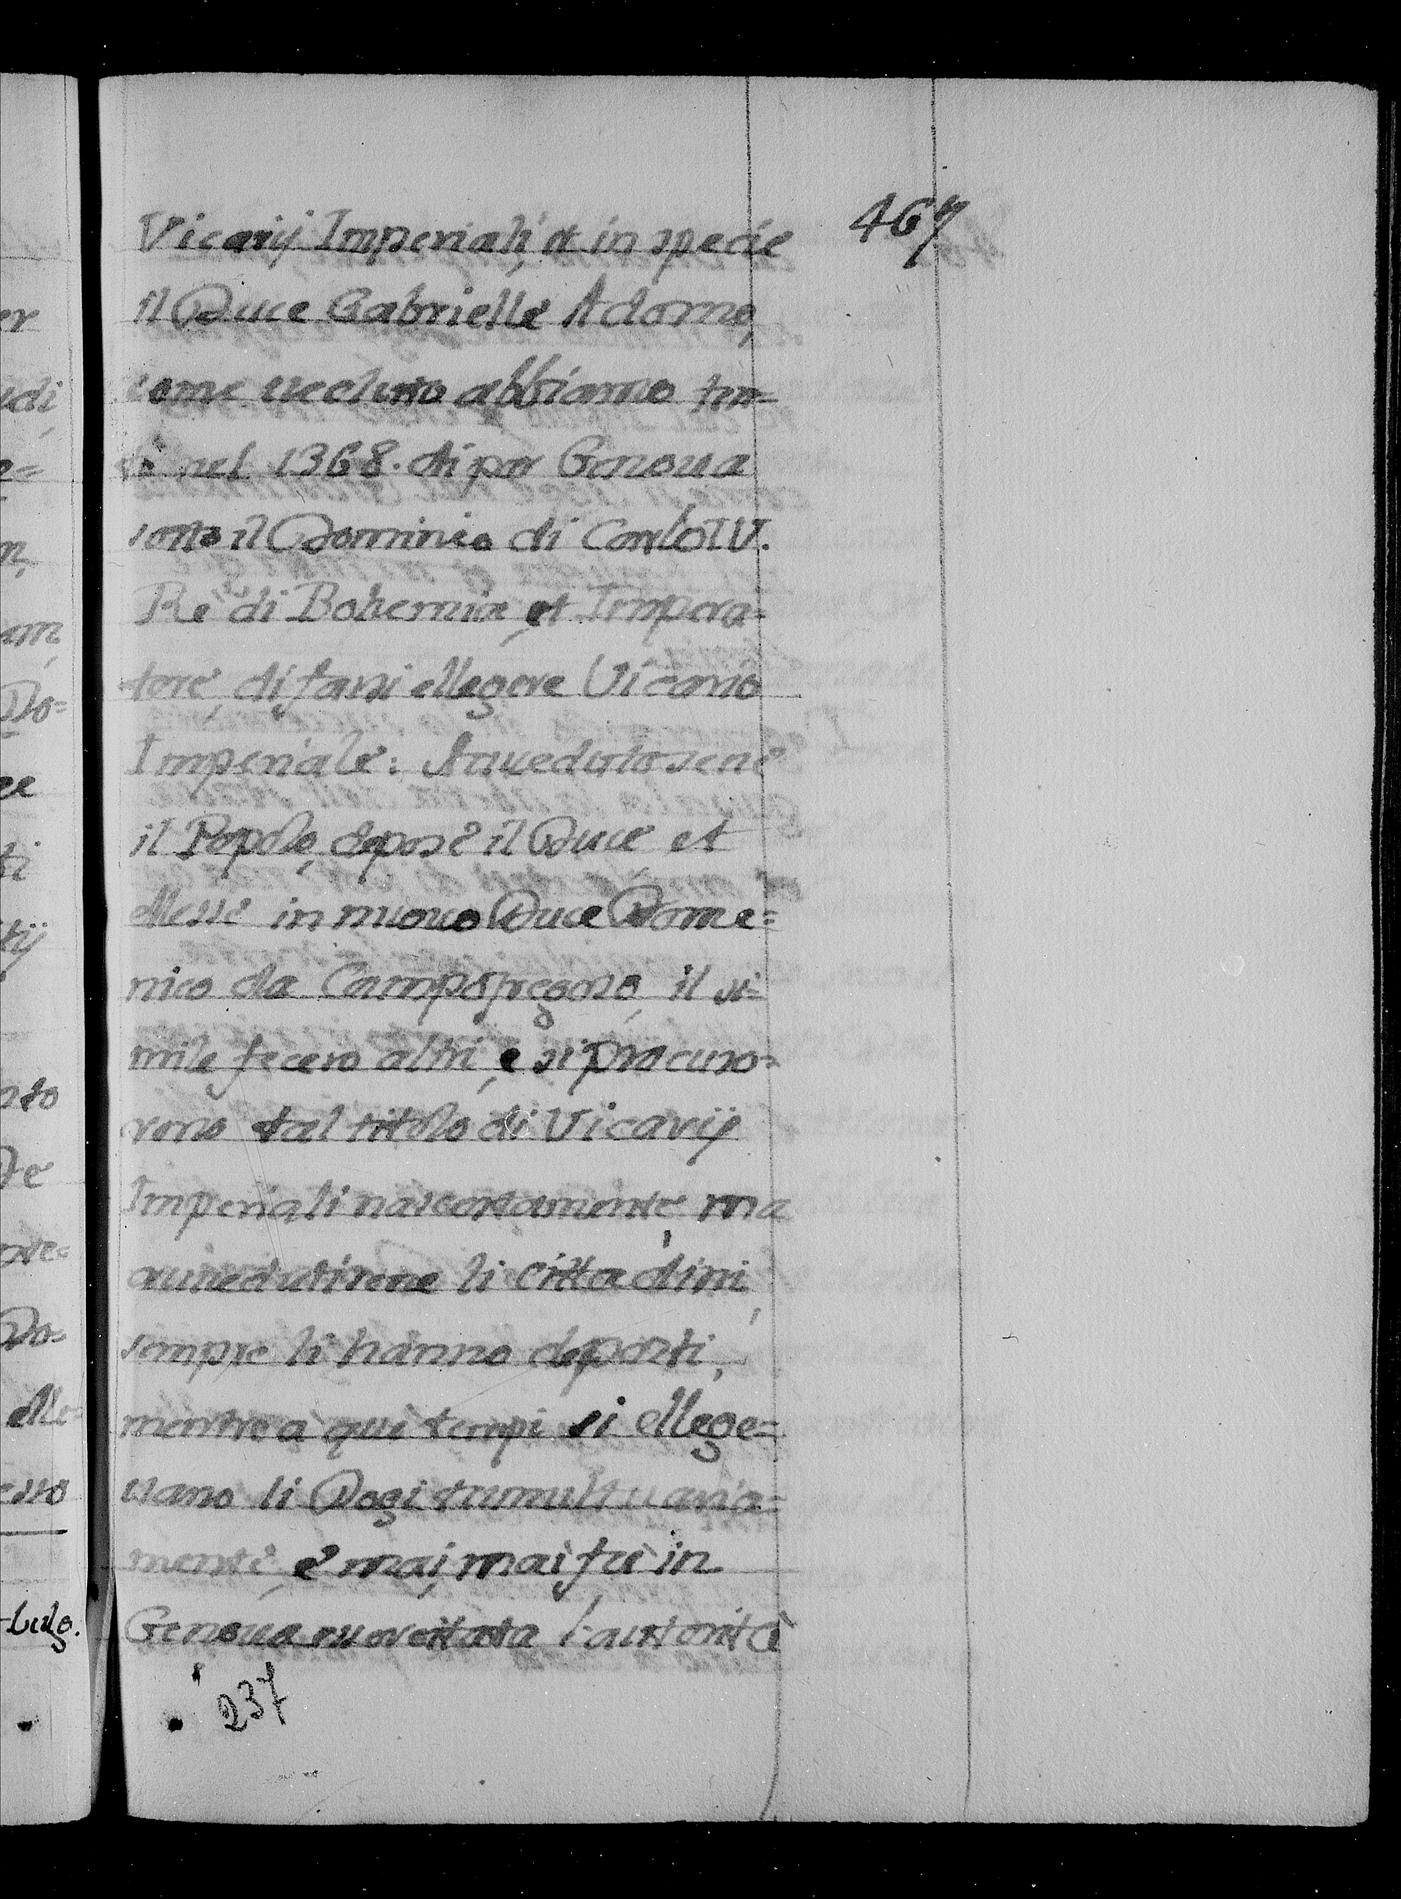 467
Vicarij Imperiali, et in specie
il Duce Gabrielle Adorno,
come veduto abbiamo ten=
tò nel 1368. di por Genoua
sotto il Dominio di Carlo IV.
Rè di Bohemia, et Impera=
tore, di farsi ellegere Vicario
Imperiale: Auuedutosene
il Popolo, depose il Duce et
ellesse in nuouo Duce Dome=
nico da Campofregoso, il si=
mile fecero altri, e si procuro=
rono tal titolo di Vicarij
Imperiali nascostamente ma
auuedutisene li cittadini,
sempre li hanno deposti,
mentre a quei tempi si ellege=
uano li Dogi tumultuaria=
mente, e mai, mai fù in
Genoua essercitata l'auttorità
237
er
udi,
o=
n,
am,
Do=
ee
ti
tij
nto
De
nte=
Do=
elle=
esso